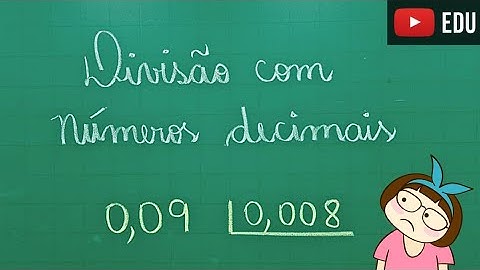 EDU
Divisão com
números decimais
0,09 0,008